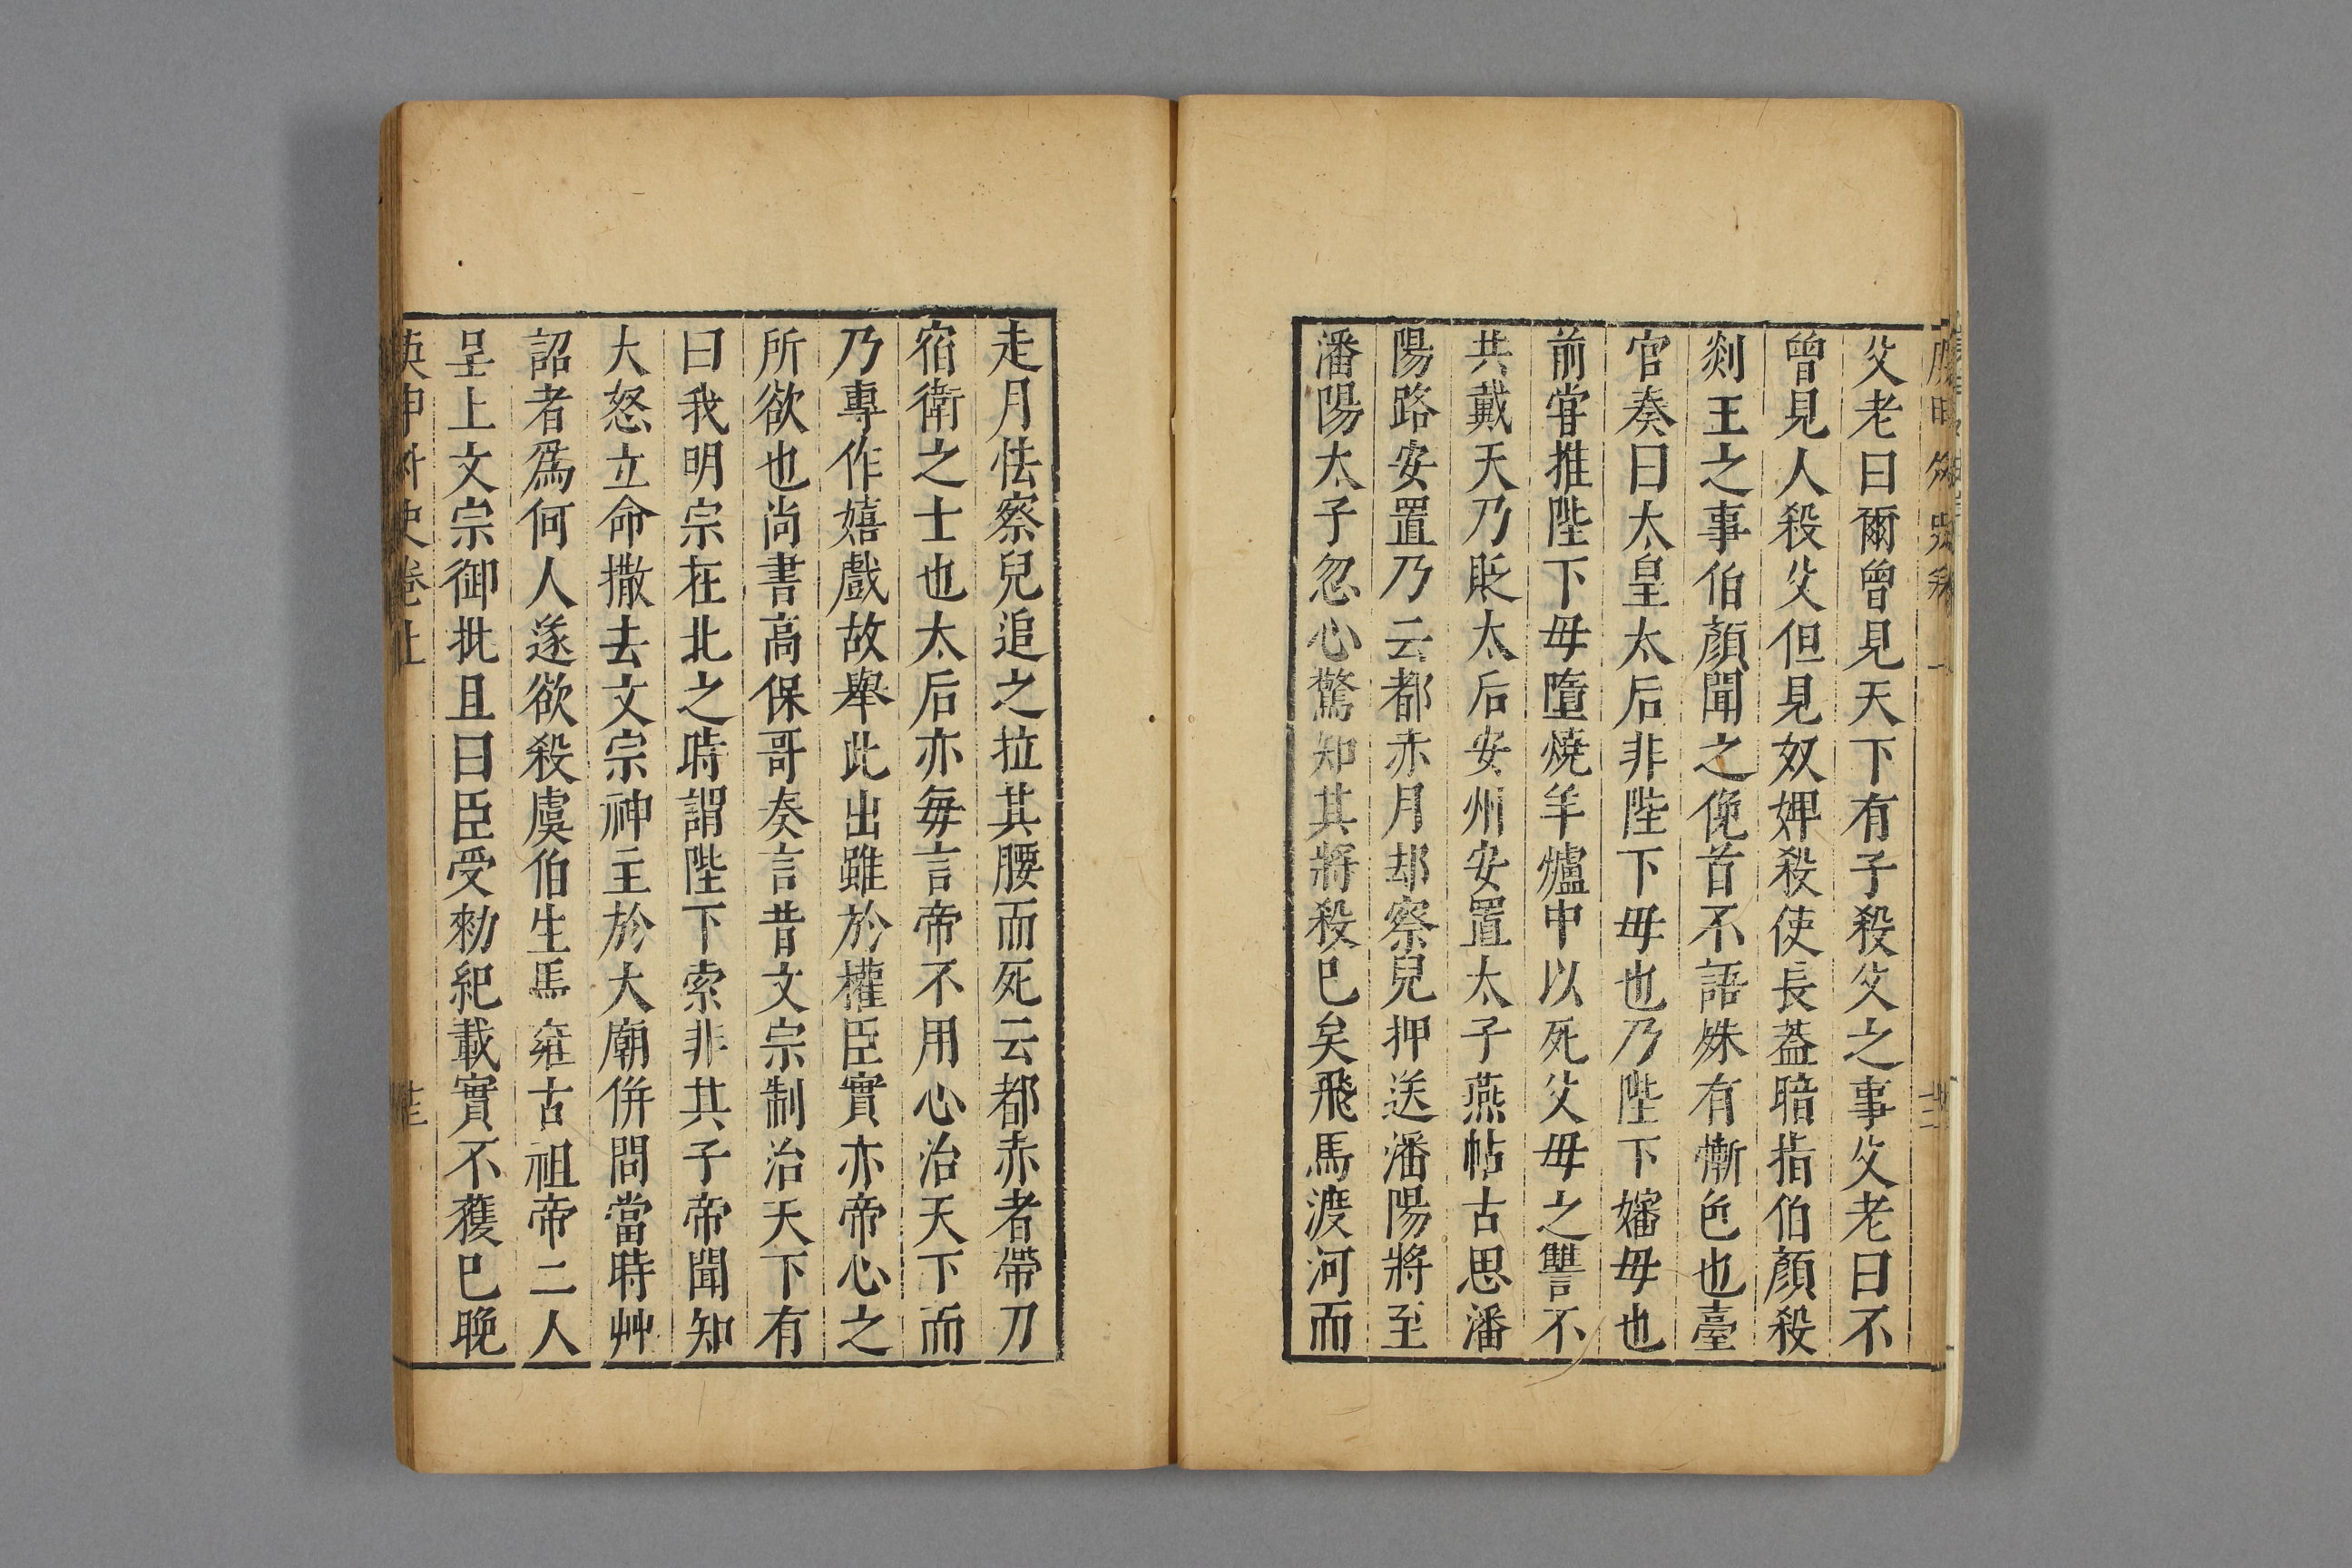 父老曰爾曾見天下有子殺父之事父老曰不
曾見人殺父但見奴婢殺使長葢暗指伯顏殺
剡王之事伯顏聞之俛首不語殊有慚色也臺
官奏曰太皇太后非陛下毋也乃陛下嬸毋也
前甞推陛下毋墮燒羊爐中以死父毋之讐不
共戴天乃貶太后安州安置太子燕帖古思潘
陽路安置乃云都赤月却察兒押送潘陽將至
潘陽太子忽心驚知其將殺巳矣飛馬渡河而
走月怯察兒追之拉其腰而死云都赤者帶刀
宿衛之士也太后亦每言帝不用心治天下而
乃專作嬉戲故舉此出雖於權臣實亦帝心之
所欲也尚書高保哥奏言昔文宗制治天下有
曰我明宗在北之時謂陛下索非其子帝聞知
大怒立命撒去文宗神主於大廟併問當時艸
詔者爲何人遂欲殺虞伯生馬雍古祖帝二人
呈上文宗御批且曰臣受勑紀載實不獲巳晚
庚申外史卷上